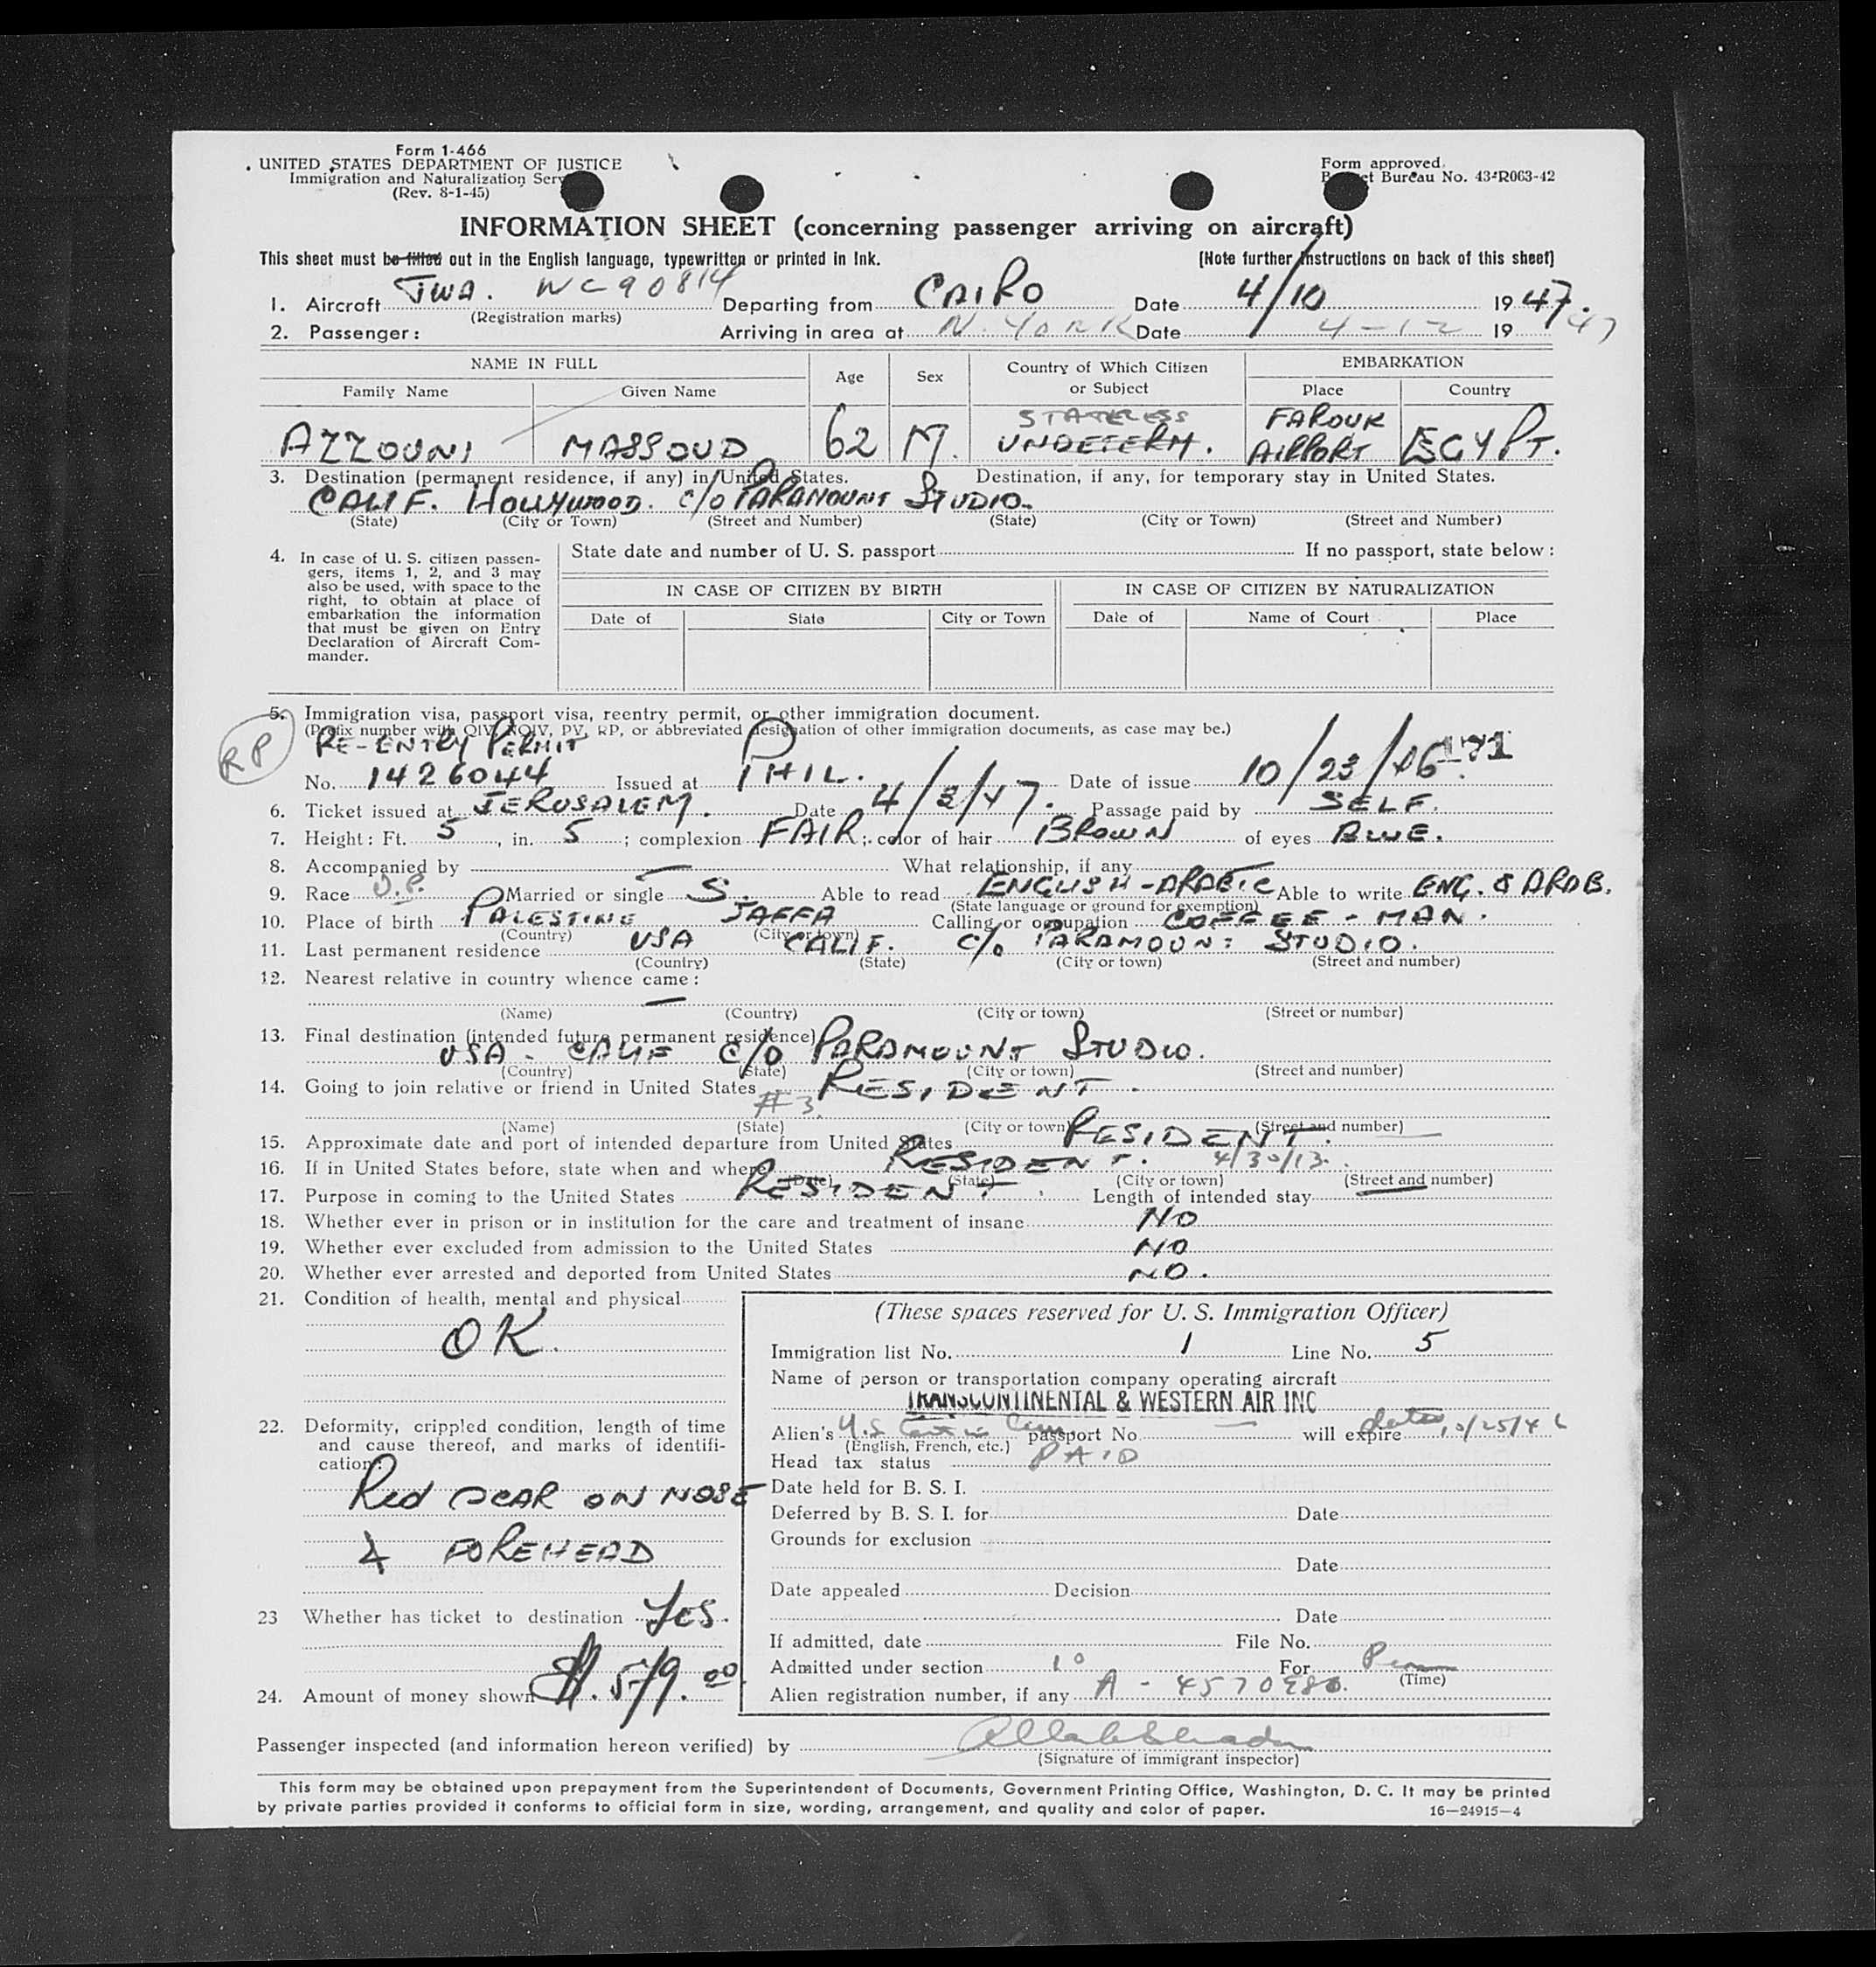 Form 1-466
UNITED STATES DEPARTMENT OF JUSTICE
Immigration and Naturalization Serv
(Rev. 8-1-45)
Form approved.
B et Bureau No. 43-R063-42
INFORMATION SHEET (concerning passenger arriving on aircraft)
This sheet must be filled out in the English language, typewritten or printed in Ink. [Note further instructions on back of this sheet]
1. Aircraft TWA. NC 90814 Departing from CAIRO Date 4/10 1947.
(Registration marks)
2. Passenger: Arriving in area at N. YORK Date 4-12 19 47
NAME IN FULL Age Sex Country of Which Citizen or Subject EMBARKATION
Family Name Given Name Place Country
STATELESS FAROUK
AZZOUNI MASSOUD 62 M. UNDETERM. AIRPORT EGYPT.
3. Destination (permanent residence, if any) in United States. Destination, if any, for temporary stay in United States.
CALIF. HOLLYWOOD. C/O PARAMOUNT STUDIO.
(State) (City or Town) (Street and Number) (State) (City or Town) (Street and Number)
4. In case of U. S. citizen passengers, items 1, 2, and 3 may also be used, with space to the right, to obtain at place of embarkation the information that must be given on Entry Declaration of Aircraft Commander.
State date and number of U. S. passport If no passport, state below:
IN CASE OF CITIZEN BY BIRTH IN CASE OF CITIZEN BY NATURALIZATION
Date of State City or Town Date of Name of Court Place
5. Immigration visa, passport visa, reentry permit, or other immigration document.
(Prefix number with QIV, NQIV, PV, RP, or abbreviated designation of other immigration documents, as case may be.)
RP RE-ENTRY PERMIT
No. 1426044 Issued at PHIL. Date of issue 10/23/46. 171
6. Ticket issued at JERUSALEM. Date 4/3/47. Passage paid by SELF.
7. Height: Ft. 5, in. 5; complexion FAIR; color of hair BROWN of eyes BLUE.
8. Accompanied by — What relationship, if any —
9. Race Married or single S. Able to read ENGLISH-ARABIC Able to write ENG. & ARAB.
(State language or ground for exemption)
10. Place of birth PALESTINE JAFFA Calling or occupation COFFEE-MAN.
(Country) (City or town)
11. Last permanent residence USA CALIF. C/O PARAMOUNT STUDIO.
(Country) (State) (City or town) (Street and number)
12. Nearest relative in country whence came:
—
(Name) (Country) (City or town) (Street or number)
13. Final destination (intended future permanent residence)
USA - CALIF C/O PARAMOUNT STUDIO.
(Country) (State) (City or town) (Street and number)
14. Going to join relative or friend in United States RESIDENT.
#3.
(Name) (State) (City or town) (Street and number)
15. Approximate date and port of intended departure from United States RESIDENT.
16. If in United States before, state when and where RESIDENT. 4/30/13.
(Date) (State) (City or town) (Street and number)
17. Purpose in coming to the United States RESIDENT. Length of intended stay —
18. Whether ever in prison or in institution for the care and treatment of insane NO
19. Whether ever excluded from admission to the United States NO
20. Whether ever arrested and deported from United States NO.
21. Condition of health, mental and physical
OK.
22. Deformity, crippled condition, length of time and cause thereof, and marks of identification:
Red SCAR ON NOSE
& FOREHEAD
23 Whether has ticket to destination Yes.
24. Amount of money shown $. 519.00
(These spaces reserved for U. S. Immigration Officer)
Immigration list No. 1 Line No. 5
Name of person or transportation company operating aircraft
TRANSCONTINENTAL & WESTERN AIR INC
Alien's U.S. passport No. — will expire
(English, French, etc.)
Head tax status PAID
Date held for B. S. I.
Deferred by B. S. I. for Date
Grounds for exclusion
Date
Date appealed Decision
Date
If admitted, date File No.
Admitted under section 10 For Perm
(Time)
Alien registration number, if any A-4570980.
Passenger inspected (and information hereon verified) by
(Signature of immigrant inspector)
This form may be obtained upon prepayment from the Superintendent of Documents, Government Printing Office, Washington, D. C. It may be printed
by private parties provided it conforms to official form in size, wording, arrangement, and quality and color of paper. 16—24915-4